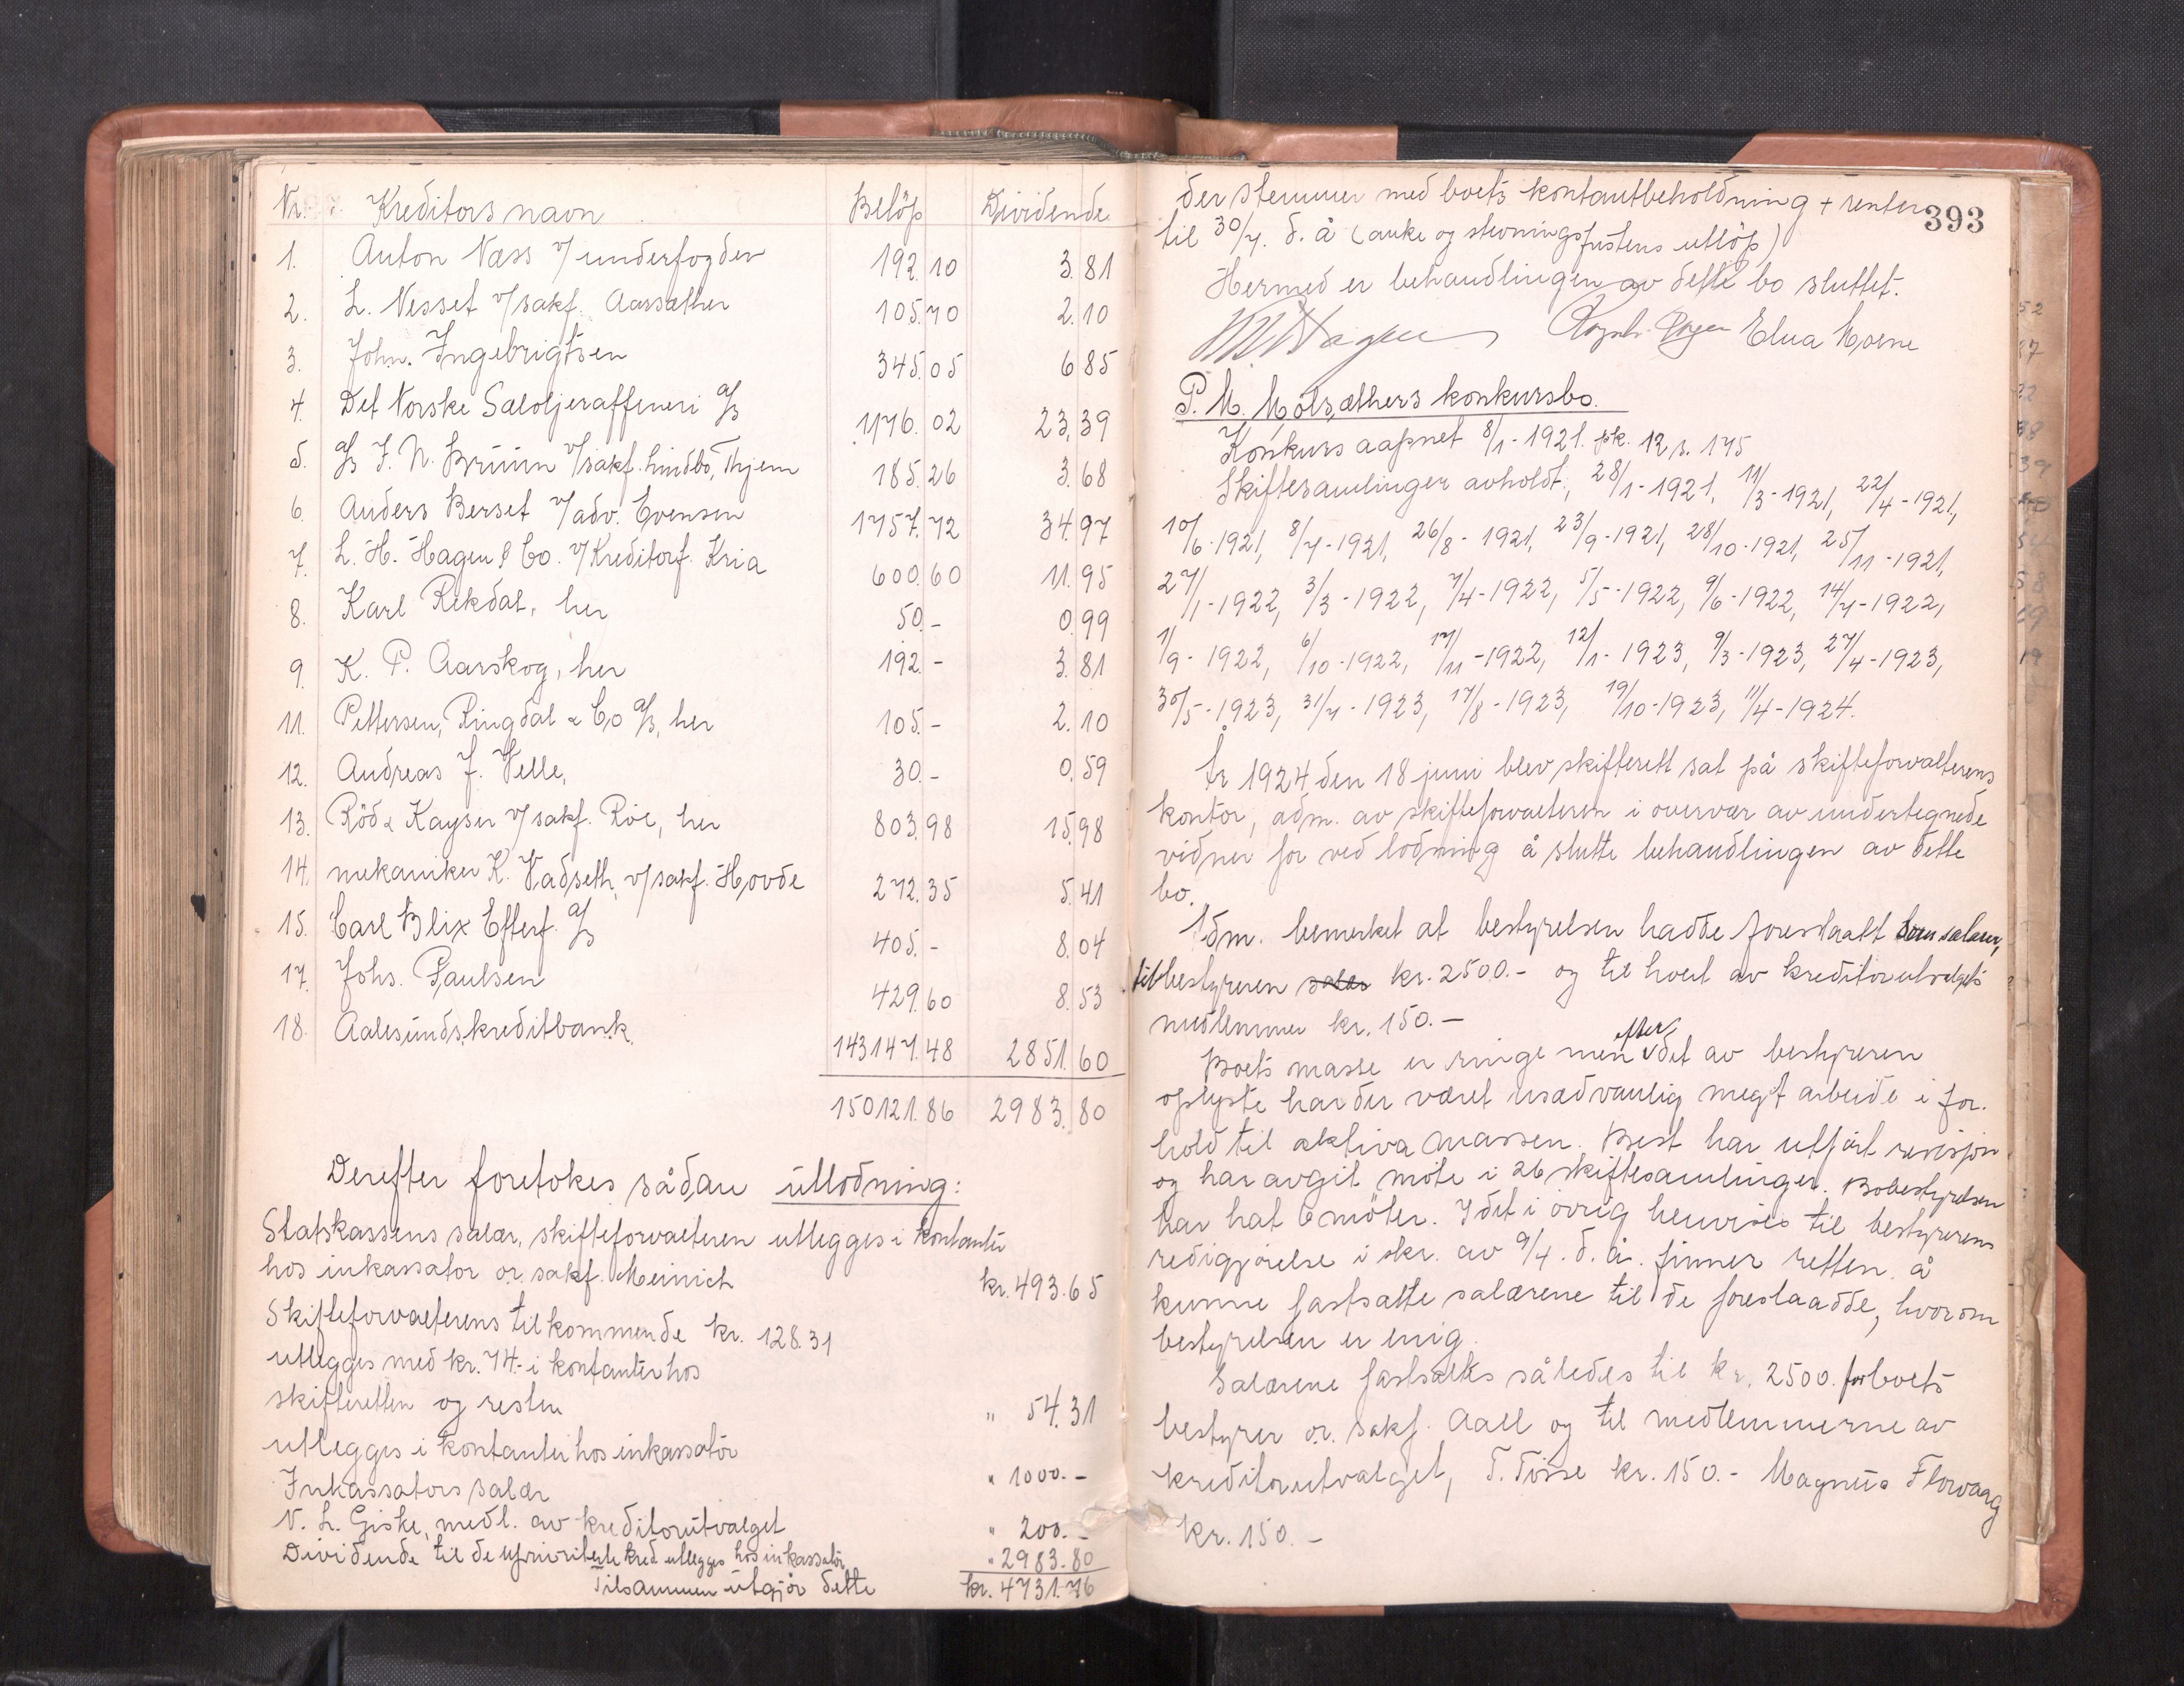 Nr. Kreditors navn Beløp Dividende
1. Anton Næss v/ underfogden 192.10 3.81
2. L. Nesset v/sakf. Aarsæther 105.70 2.10
3. John. Ingebrigtsen 345.05 6.85
4. Det Norske Sæloljeraffineri a/s 1176.02 23.39
5. a/s J. N. Bruun v/sakf. Lindbo, Thjem 185.26 3.68
6. Anders Berset v/adv. Evensen 1757.72 34.97
7. L. H. Hagen & Co. v/Kreditorf. Kria 600.60 11.95
8. Karl Rekdal, her 50.- 0.99
9. K. P. Aarskog, her 192.- 3.81
11. Pettersen, Ringdal & Co a/s, her 105.- 2.10
12. Andreas J. Velle, 30.- 0.59
13. Röd & Kayser v/sakf. Röe, her 803.98 15.98
14. mekaniker K. Vadseth v/sakf. Hovde 272.35 5.41
15. Carl Blix Efterf. a/s 405.- 8.04
17. Johs. Paulsen 429.60 8.53
18. Aalesunds kreditbank 143147.48 2851.60
150121.86 2983.80
Derefter foretokes sådan utlodning:
Statskassens salær, skifteforvalteren utlegges i kontanter
hos inkassator o.r. sakf. Meinich kr. 493.65
Skifteforvalterens tilkommende kr. 128.31
utlegges med kr. 74.- i kontanter hos
skifteretten og resten
utlegges i kontanter hos inkassator " 54.31
Inkassators salær " 1000.-
N. L. Giske, medl. av kreditorutvalget " 200.-
Dividende til de uprioriterte kred utlegges hos inkassator " 2983.80
Tilsammen utgjør dette kr. 4731.76
393
der stemmer med boets kontantbeholdning + renter
til 30/7. d. å (anke og stevningsfristens utløp)
Hermed er behandlingen av dette bo sluttet.
Elna Moene
P. M. Molsæthers konkursbo.
Konkurs aapnet 8/1-1921. pk. 12 s. 175
Skiftesamlinger avholdt, 28/1-1921, 11/3-1921, 22/4-1921,
10/6-1921, 8/7-1921, 26/8-1921, 23/9-1921, 28/10-1921, 25/11-1921,
27/1-1922, 3/3-1922, 7/4-1922, 5/5-1922, 9/6-1922, 14/7-1922,
1/9-1922, 6/10-1922, 17/11-1922, 12/1-1923, 9/3-1923, 27/4-1923,
30/5-1923, 31/7-1923, 17/8-1923, 19/10-1923, 11/4-1924.
År 1924 den 18 juni blev skifterett sat på skifteforvalterens
kontor, adm. av skifteforvalteren i overvær av undertegnede
vidner for ved lodning å slutte behandlingen av dette
bo.
Adm. bemerket at bestyrelsen hadde foreslaatt som salær,
til bestyreren salær kr. 2500.- og til hvert av kreditorutvalgets
medlemmer kr. 150.-
Boets masse er ringe men efter det av bestyreren
oplyste har der været usædvanlig meget arbeide i for-
hold til aktiva massen. Best har utført revisjon
og har avgit møte i 26 skiftesamlinger. Bobestyrelsen
har hat 6 møter. I det i øvrig henvises til bestyrerens
redigjørelse i skr. av 9/4. d. å. finner retten å
kunne fastsatte salærene til de foreslaadde, hvorom
bestyrelsen er enig.
Salærene fastsattes således til kr. 2500. for boets
bestyrer o.r. sakf. Aall og til medlemmerne av
kreditorutvalget, T. Tösse kr. 150.- Magnus Flovaag
kr. 150.-